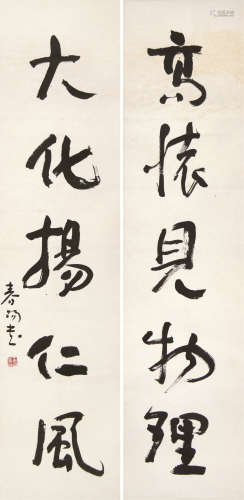 高懷見物理
大化揚仁風
春陽書